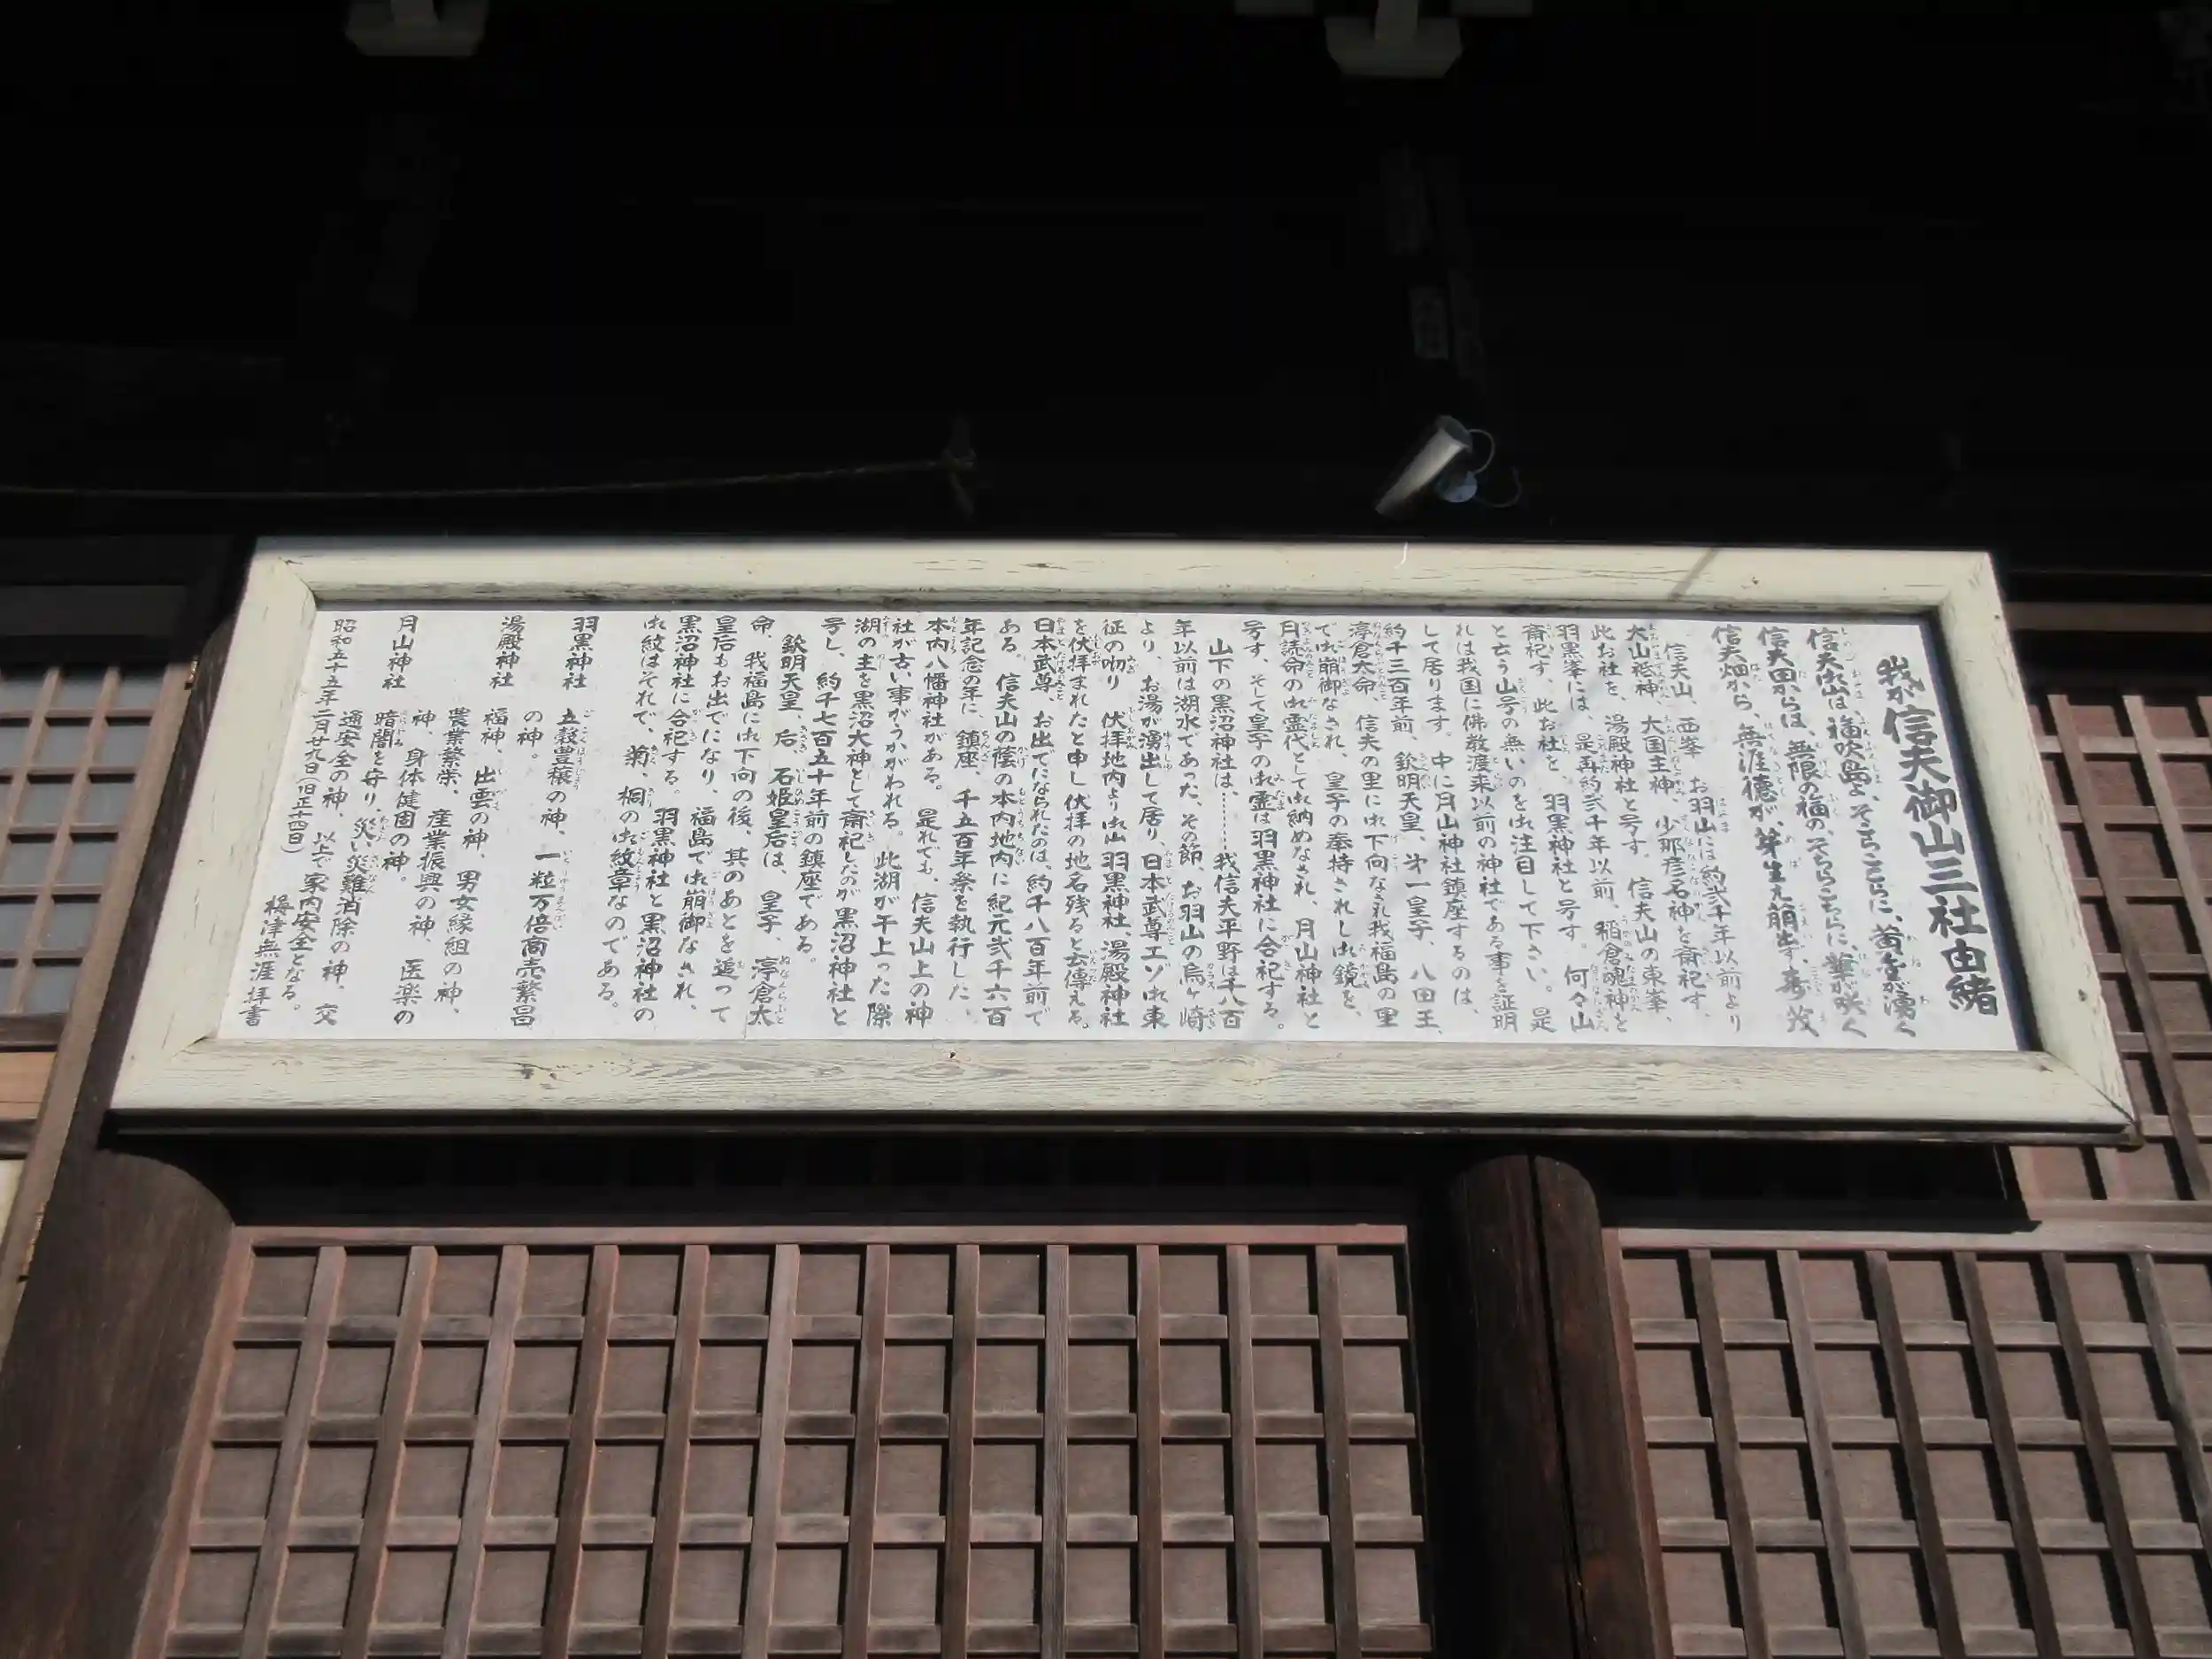 我が信夫御山三社由緒
信夫御山は、福吹島よ、そちらこちらに、黄金が湧く
信夫田からは、無限の福の、そちらこちらに、華が咲く
信夫畑から、無涯徳が、芽生え萠出す、
信夫山、西峯 お羽山には約弐千年以前より
大山祗神、大国主神、少那彦名神を斎祀す、
此お社を、湯殿神社と号す。信夫山の東峯、
羽黒峯には、是再約弐千年以前、稲倉魂神を
斎祀す、此お社を、羽黒神社と号す。何々山
と云う山号の無いのを御注目して下さい。是
れは我国に佛教渡来以前の神社である事を証明
して居ります。中に月山神社鎮座するのは、
約千三百年前、欽明天皇、才一皇子、八田王、
渟倉太命、信夫の里に御下向なされ我福島の里
で御崩御なされ、皇子の奉持されし御鏡を、
月読命の御霊代として御納めなされ、月山神社と
号す、そして皇子の御霊は羽黒神社に合祀する。
山下の黒沼神社は、……我信夫平野は千八百
年以前は湖水であった、その節、お羽山の烏ヶ崎
より、お湯が湧出して居り、日本武尊エゾ御東
征の砌り 伏拝地内より御山羽黒神社、湯殿神社
を伏拝まれたと申し伏拝の地名残ると云傳える。
日本武尊、お出でになられたのは、約千八百年前で
ある。信夫山の蔭の本内地内に紀元弐千六百
年記念の年に、鎮座、千五百年祭を執行した、
本内八幡神社がある。是れでも、信夫山上の神
社が古い事がうかがわれる。此湖が干上った際
湖の主を黒沼大神として斎祀したのが黒沼神社と
号し、約千七百五十年前の鎮座である。
欽明天皇、后、石姫皇后は、皇子、渟倉太
命、我福島に御下向の後、其のあとを追って
皇后もお出でになり、福島で御崩御なされ、
黒沼神社に合祀する。羽黒神社と黒沼神社の
御紋はそれで、菊、桐の御紋章なのである。
羽黒神社 五穀豊穣の神、一粒万倍商売繁昌
の神。
湯殿神社 福神、出雲の神、男女縁組の神、
農業繁栄、産業振興の神、医楽の
神、身体健固の神。
月山神社 暗闇を守り、災い災難消除の神、交
通安全の神、以上で家内安全となる。
昭和五十五年二月廿九日(旧正十四日) 梅津無涯拝書